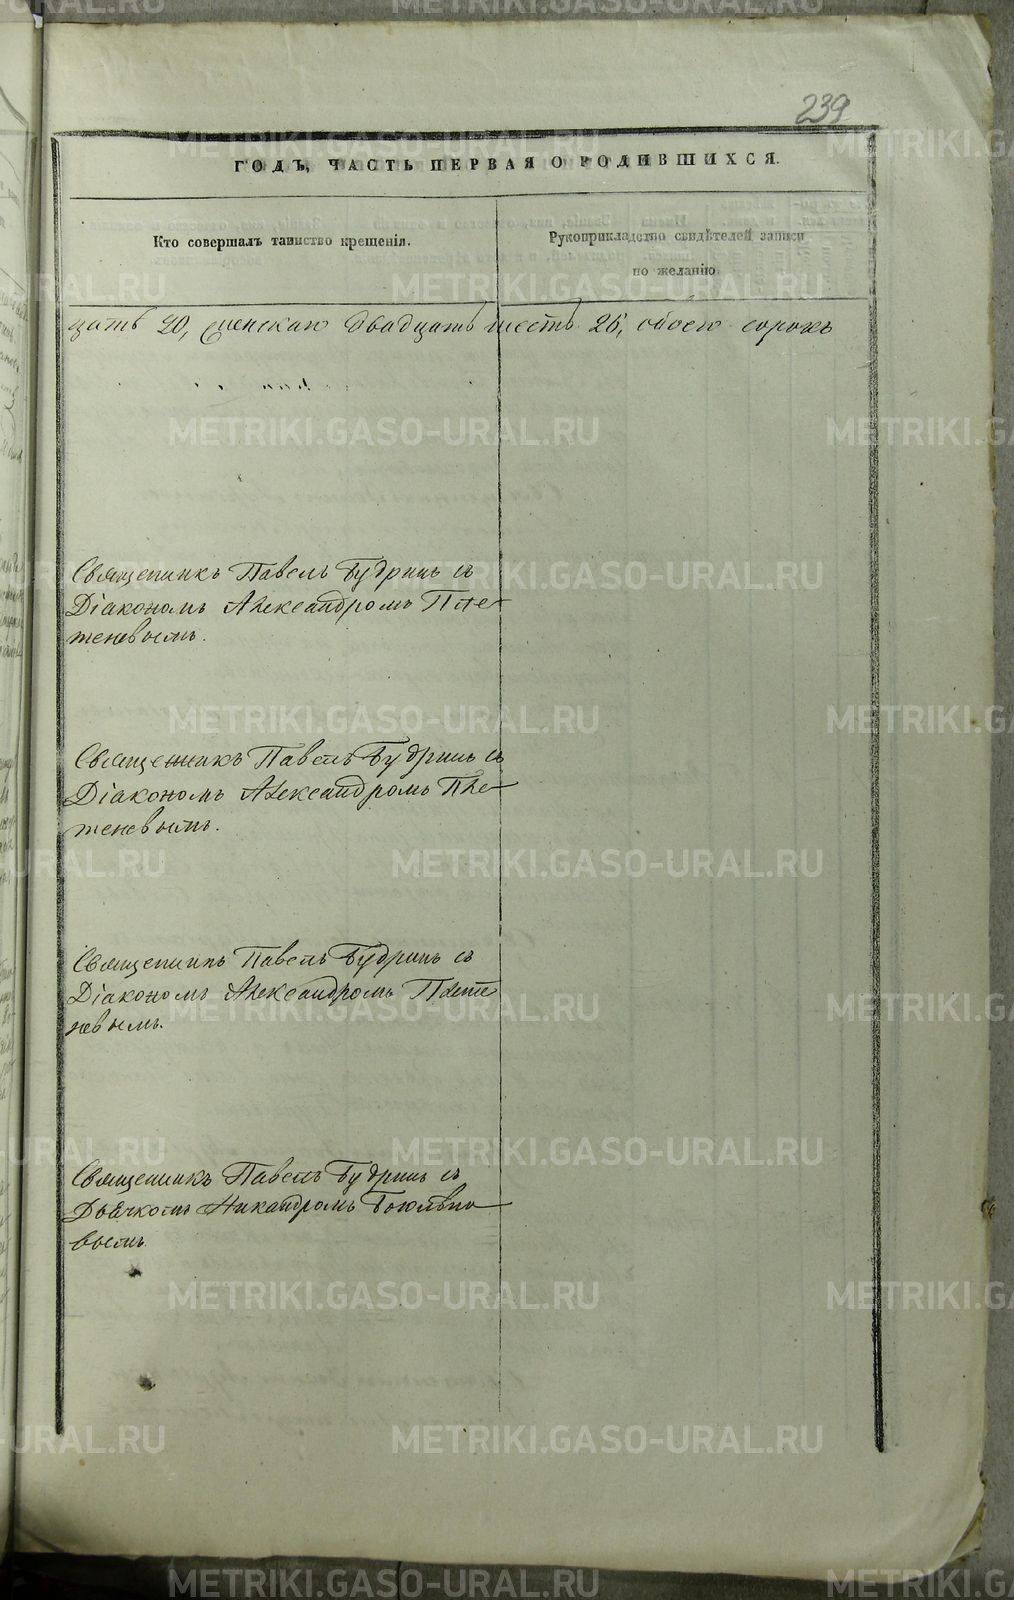 239
ГОДЪ, ЧАСТЬ ПЕРВАЯ О РОДИВШИХСЯ.
Кто совершалъ таинство крещенія.
Рукоприкладство свидѣтелей записи
по желанію.
цать 20, женскаго двадцать шесть 26, обоего сорокъ
Священникъ Павелъ Будринъ съ
Діакономъ Александромъ Плет-
теневымъ.
Священникъ Павелъ Будринъ съ
Діакономъ Александромъ Пле-
теневымъ.
Священникъ Павелъ Будринъ съ
Діакономъ Александромъ Плете
невымъ.
Священникъ Павелъ Будринъ съ
Дьячкомъ Никандромъ
вымъ.
METRIKI.GASO-URAL.RU